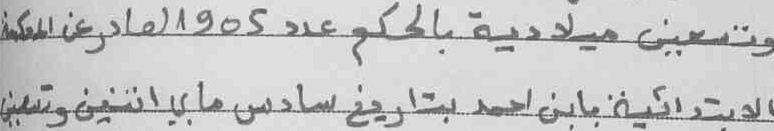 وتسعين ميلادية بالحكم عدد 1905 الصادر عن المحكمة
الابتدائية بابن احمد بتاريخ سادس ماي اثنين وتسعين